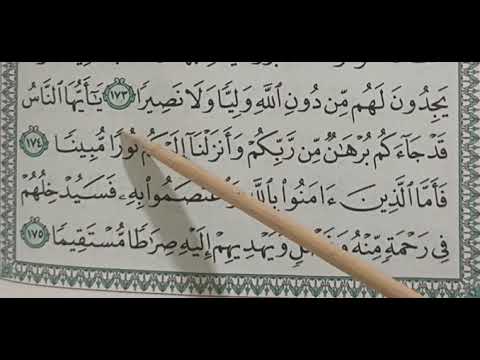 يَجِدُونَ لَهُم مِّن دُونِ ٱللَّهِ وَلِيًّا وَلَا نَصِيرًا ١٧٣ يَـٰٓأَيُّهَا ٱلنَّاسُ
قَدْ جَآءَكُم بُرْهَـٰنٌ مِّن رَّبِّكُمْ وَأَنزَلْنَآ إِلَيْكُمْ نُورًا مُّبِينًا ١٧٤
فَأَمَّا ٱلَّذِينَ ءَامَنُوا۟ بِٱللَّهِ وَٱعْتَصَمُوا۟ بِهِۦ فَسَيُدْخِلُهُمْ
فِى رَحْمَةٍ مِّنْهُ وَفَضْلٍ وَيَهْدِيهِمْ إِلَيْهِ صِرَٰطًا مُّسْتَقِيمًا ١٧٥